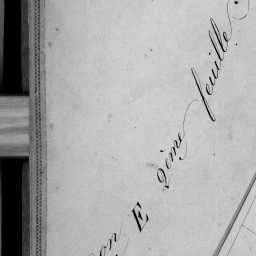 on E 2ème feuille.